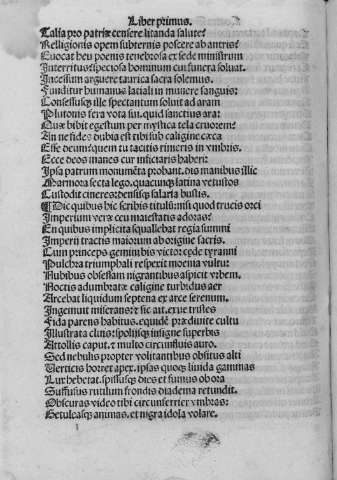 Liber primus.
Talia pro patriæ censere litanda salute?
Relligionis opem subternis poscere ab antris?
Euocat heu poenis tenebrosa ex sede ministrum
Interritus speciosa hominum cui funera soluat.
Incessum arguere taurica sacra solemus.
Funditur humanus latiali in munere sanguis:
Consessusq; ille spectantum soluit ad aram
Plutonis fera vota sui. quid sanctius ara:
Quæ bibit egestum per mystica tela cruorem?
An ne fides dubia est tibi sub caligine cæca
Esse deum: quem tu tacitis rimeris in vmbris.
Ecce deos manes cur inficiaris haberi:
Ipsa patrum monumēta probant. dis manibus illic
Marmora secta lego. quacunq; latina vetustos
Custodit cineres: densisq; salaria bustis.
Dic quibus hic scribis titulū: nisi quod trucis orci
Imperium verę ceu maiestatis adoras?
En quibus implicita squallebat regia summi
Imperii tractis maiorum ab origine sacris.
Cum princeps gemini bis victor cęde tyranni
Pulchra triumphali respexit moenia vultu:
Nubibus obsessam nigrantibus aspicit vrbem.
Noctis adumbratæ caligine turbidus aer
Arcebat liquidum septena ex arce serenum.
Ingemuit miserans: et sic ait. exue tristes
Fida parens habitus. equidē prædiuite cultu
Illustrata cluis: spoliisq; insigne superbis
Attollis caput. et multo circumfluis auro.
Sed nebulis propter volitantibus obsitus alti
Verticis horret apex. ipsas quoq; liuida gammas
Lux hebetat. spissusq; dies et fumus ob ora
Suffusus rutilum frondis diadema retundit.
Obscuras video tibi circunferrier vmbras:
Cęruleasq; animas. et nigra idola volare.